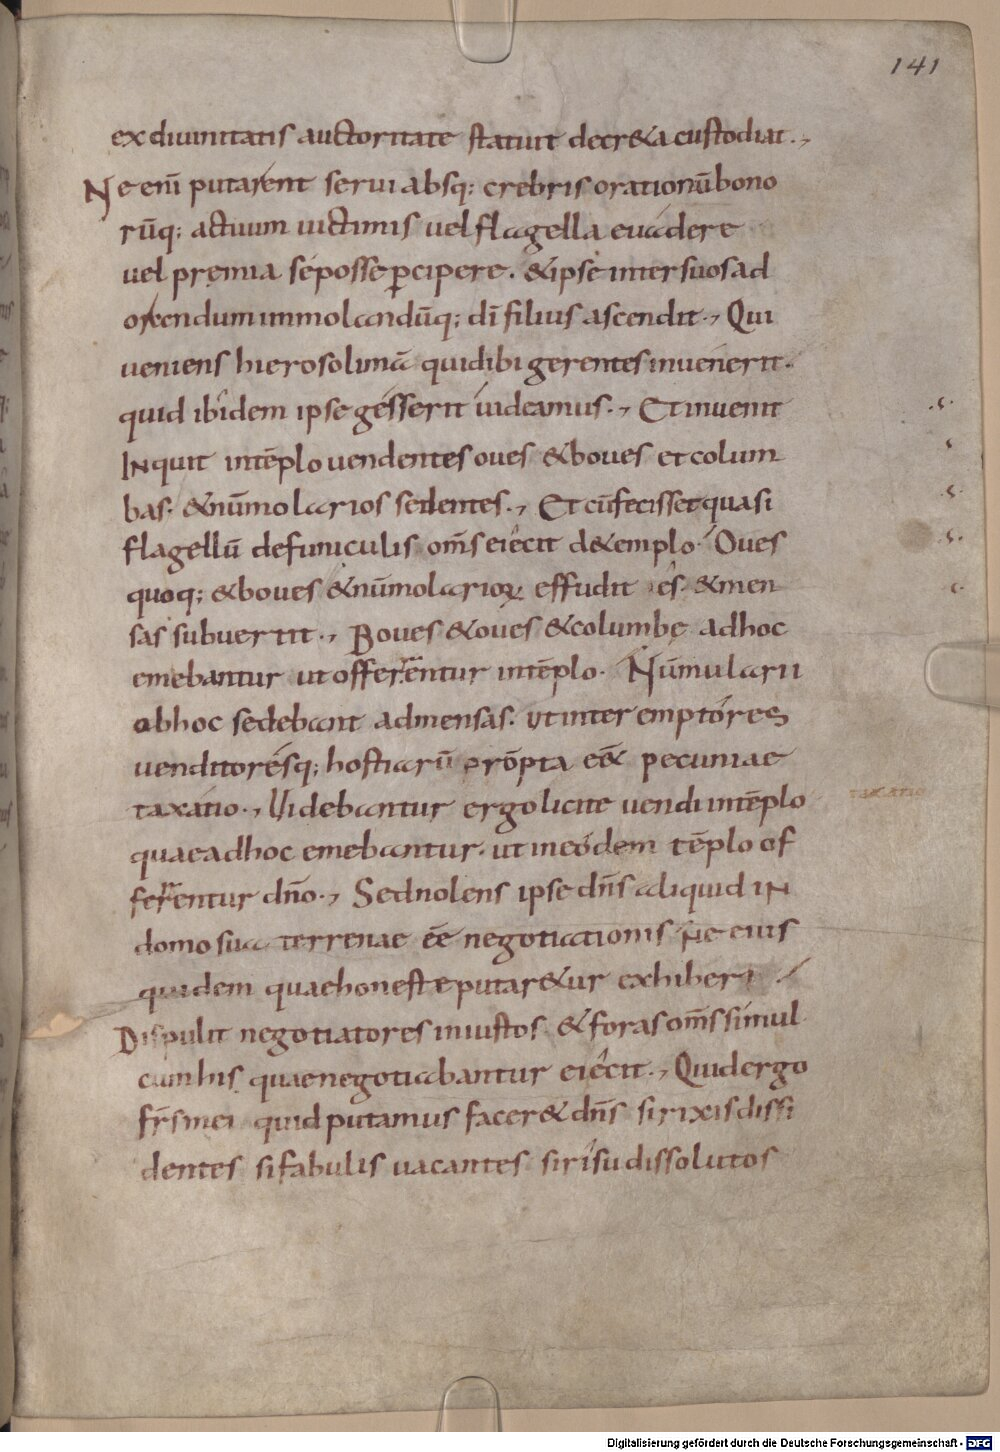 141
ex diuinitatis auctoritate statuit decr&a custodiat.,
Ne enī putarent serui absq; crebris orationū bono
rūq; actuum uictimis uel flagella euadere
uel premia se posse ꝑcipere. & ipse inter suos ad
orandum immolandūq; dī filius ascendit., Qui
ueniens hierosolimā quid ibi gerentes inuenerit.
quid ibidem ipse gesserit uideamus., Et inuenit
INquit intēplo uendentes oues & boues et colum
bas. & nūmolarios sedentes., Et cū fecisset quasi
flagellū de funiculis om̄s eiecit de templo. Oues
quoq; & boues & nūmolarioꝝ effudit ęs. & men
sas subuertit., Boues & oues & columbę ad hoc
emebantur ut offerrentur intēplo. Nūmularii
ob hoc sedebant ad mensas. ut inter emptores
uenditoresq; hostiarū prōpta eē& pecuniae
taxatio., Uidebantur ergo licite uendi intēplo
taxatio
quae ad hoc emebantur. ut in eodem tēplo of
ferrentur dn̄o., Sed nolens ipse dn̄s aliquid IN
domo sua terrenae eē negotiationis Ne eius
quidem quae honeste putar&ur exhiberi
Dispulit negotiatores iniustos & foras om̄s simul
cum his quae negotiabantur eiecit., Quid ergo
fr̄s mei quid putamus facer& dn̄s si rixis dissi
dentes si fabulis uacantes si risu dissolutos
Digitalisierung gefördert durch die Deutsche Forschungsgemeinschaft - DFG